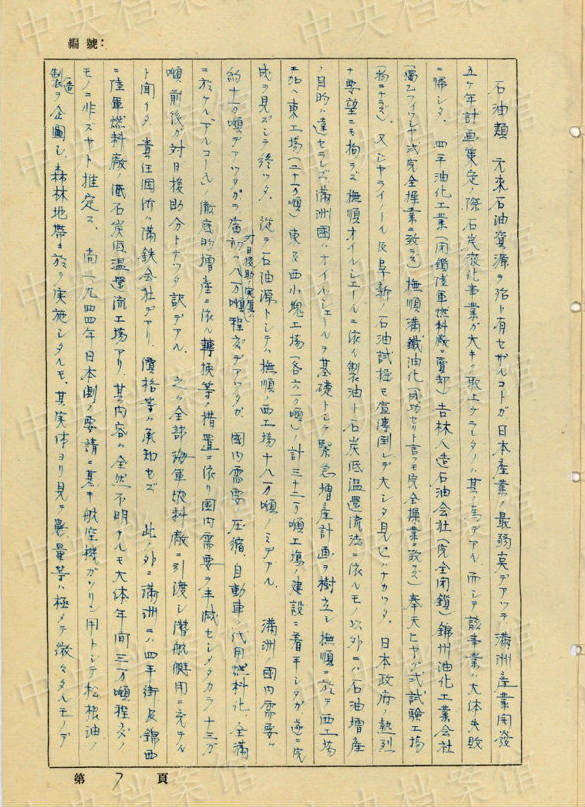 編號：
石油類 元来石油資源ヲ殆ト有セザルコトガ日本産業ノ最弱点デアツテ満洲産業開発
五ケ年計画策定ノ際石炭液化事業ガ大キク取上ケラレタノハ其ノ為デアル 而シテ該事業ハ大体失敗
ニ帰シタ 四平油化工業(閉鎖陸軍燃料廠ニ売却) 吉林人造石油会社(完全閉鎖) 錦州油化工業会社
完全操業ニ致ラズ) 撫順満鐵油化(成功セリト言フモ完全操業ニ致ラズ) 奉天ヒヤガ式試験工場
又ジヤライノール及阜新ノ石油試掘モ宣傳倒レデ大シタ見込ハナカツタ 日本政府ノ熱烈
ナ要望ニモ拘ラズ撫順オイルシエールニ依ル製油ト石炭低温還流法ニ依ルモノ以外ニハ石油増産
ノ目的ハ達セラレズ満洲國ハオイルシエールヲ基礎トシテ緊急増産計画ヲ樹立シ撫順ニ於テ西工場
ニ加ヘ東工場(二十万噸) 東及西小塊工場(各六万噸) 計三十二万噸工場ノ建設ニ着手シタガ遂ニ完
成ヲ見ズシテ終ツタ 従テ石油源トシテハ撫順ノ西工場十八万噸ノミデアル 満洲國内需要ハ
約十万噸デアツタガ 対日援助ノ実質ハ 八万噸程度デアツタガ 國内需要ノ圧縮、自動車ノ代用燃料化、全満
ニ於ケルアルコールノ徹底的増産ニ依ル轉換等ノ措置ニ依リ国内需要ヲ半減セシメタカラ十三万
噸前後ガ対日援助分トナツタ訳デアル 之ハ全部海軍燃料廠ニ引渡シ潜航艇用ニ充テル
ト聞イタ 責任箇所ハ満鉄会社デアリ 價格等ハ承知セズ 此ノ外ニ満洲ニハ四平街及錦西
ニ陸軍燃料廠ノ低石炭低温還流工場アリ 其ノ内容ハ全然不明ナルモ大体年間三万噸程度ノ
モノニ非ズヤト推定ス 尚一九四四年日本側ノ要請ニ基キ航空機ガソリン用トシテ松根油ノ
製造ヲ企画シ森林地帯ニ於テ実施シタルモ、其実体ヨリ見テ数量等ハ極メテ微々タルモノデ
第 7 頁
中央档案馆